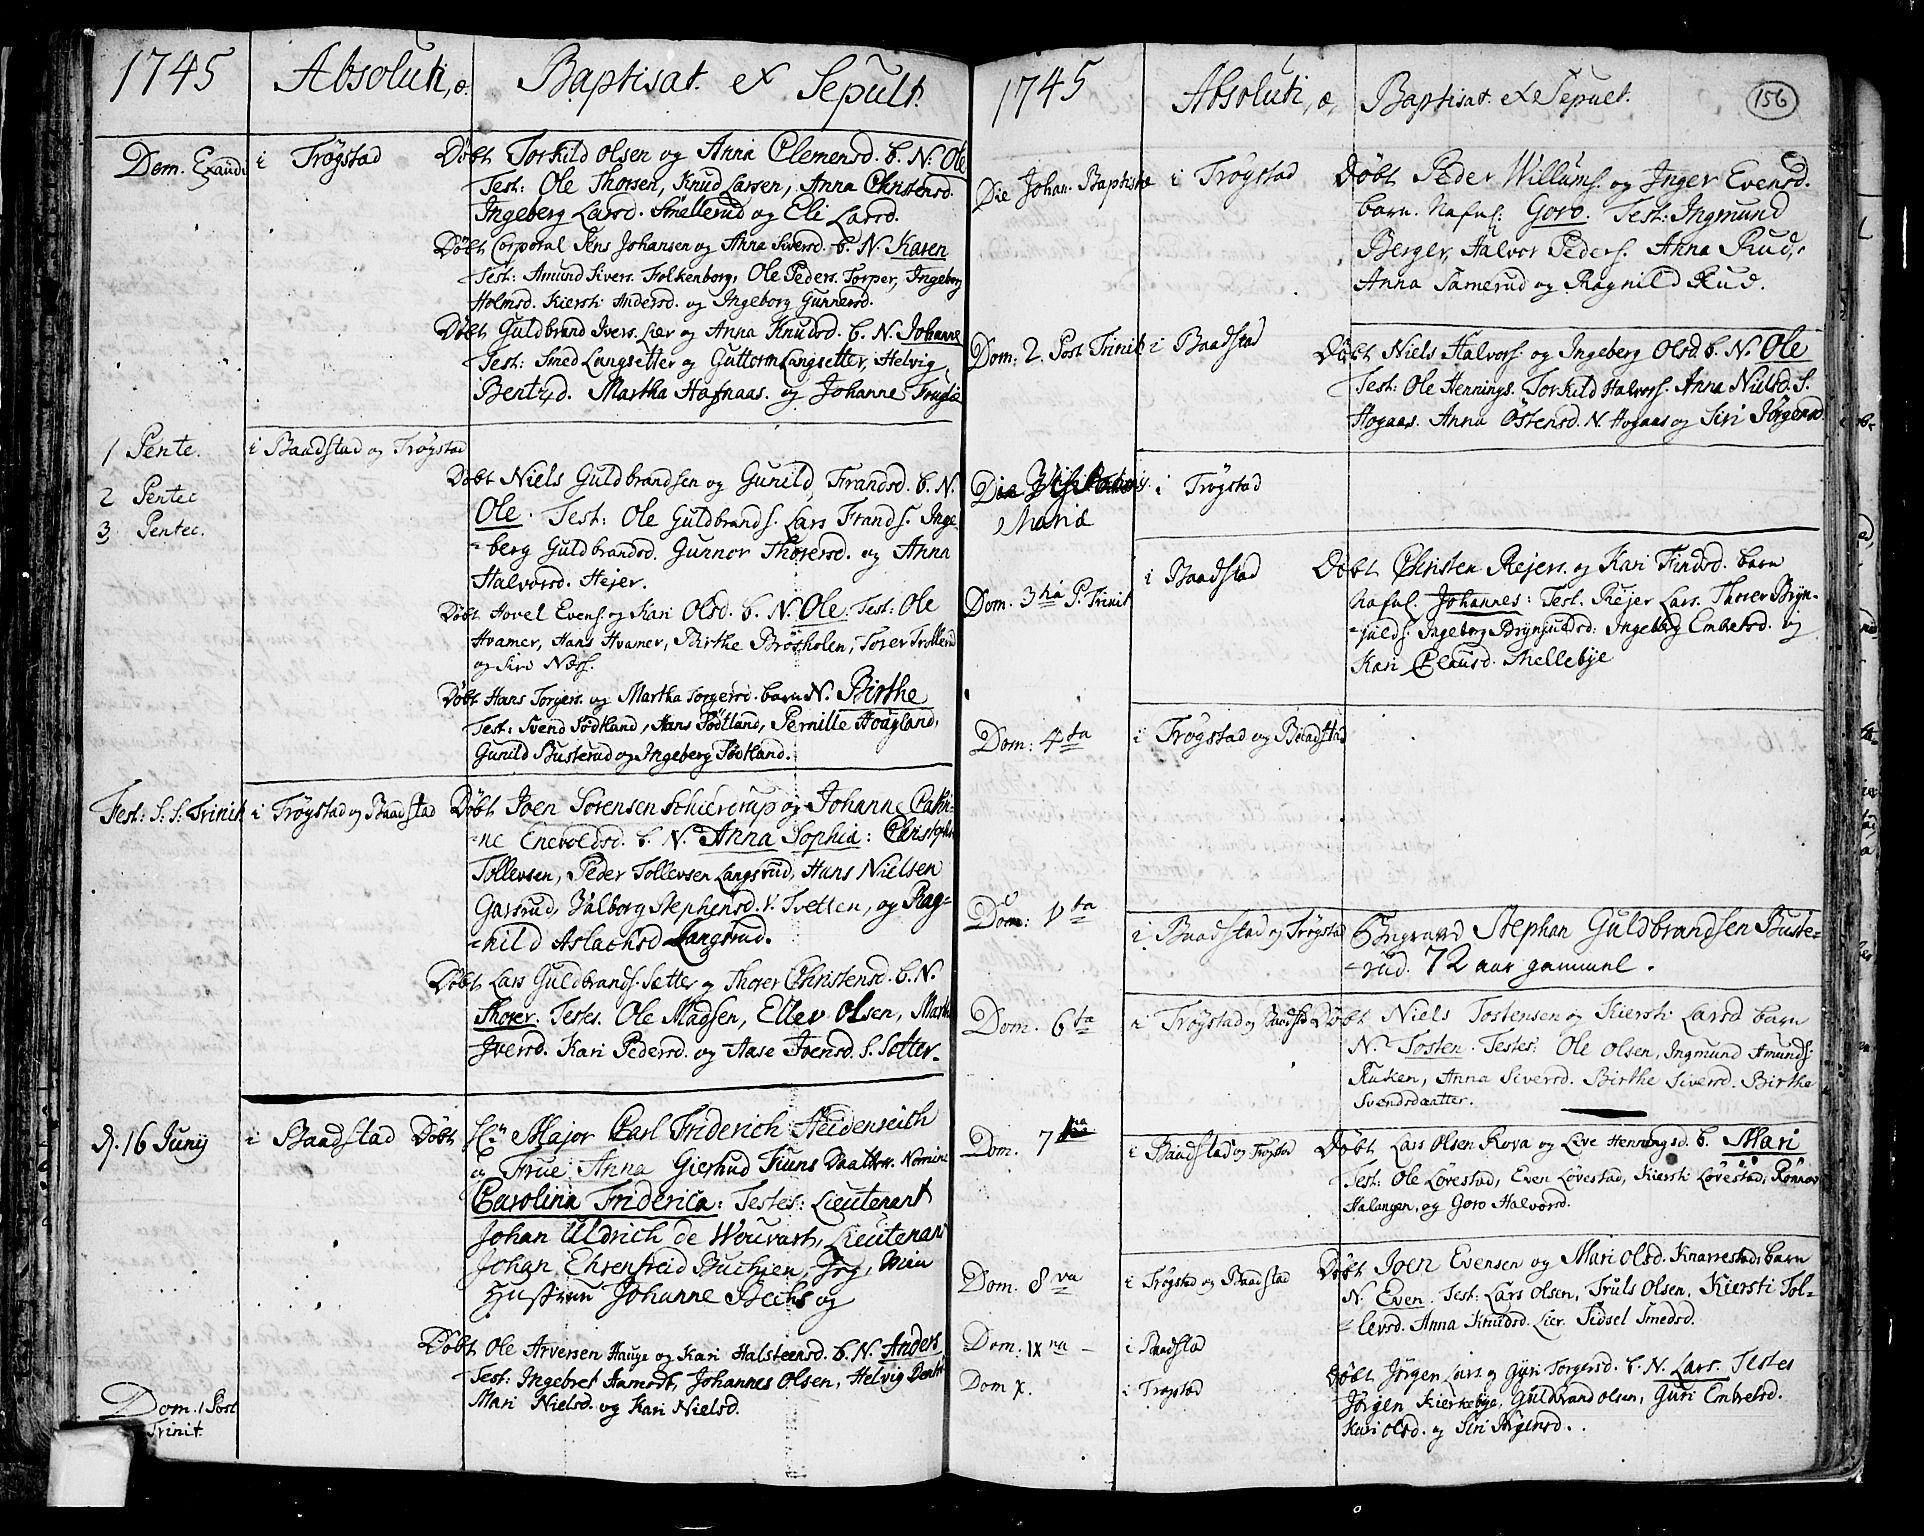 1745 Absoluti, æ. Baptisat. et Sepult.
Dom. Exaudi i Trögstad Döbt Torkild Olsen og Anna Clemensd. b. N: Ole
Test: Ole Thorsen, Knud Larsen, Anna Christensd.
Ingeberg Larsd. Smellerud og Eli Larsd.
Döbt Corporal Jens Johansen og Anna Siversd. b. N. Karen
Test: Amund Sivers. Folkenborg, Ole Peders. Torper, Ingeborg
Holmsd. Kiersti Andersd. og Ingeborg Gunnersd.
Döbt Guldbrand Ivers. Lier og Anna Knudsd. b. N. Johanne
Test: Smed Langsetter og Guttorm Langsetter, Helvig
Bentsd. Martha Hafnaas. og Johanne
1 Pente. i Baadstad og Trögstad
2 Pentec
3 Pentec.
Döbt Niels Guldbrandsen og Gunild Frandsd. b. N.
Ole. Test: Ole Guldbrands. Lars Frands. Inge
-berg Guldbrandsd. Gunnor Thorersd. og Anna
Halvorsd. Hejer.
Döbt Hovel Evens. og Kari Olsd. b. N. Ole. Test: Ole
Hvamer, Hans Hvamer, Birthe Brösholen, Torer
og Siri Næss.
Döbt Hans Torgers. og Martha Torgersd. barn N. Birthe
Test: Svend Födtland, Hans Födtland, Pernille Hougland,
Gunild Busterud og Ingeberg Födtland.
Fest: S. S. Trinit i Trögstad og Baadstad Döbt Joen Sörensen Schierorup og Johanne Cathri-
-ne Enevoldsd. b. N. Anna Sophia: Christopher
Tollevsen, Peder Tollevsen Langsrud, Hans Nielsen
Garsrud, Valborg Stephensd. V. Tvetten, og Rag-
-nild Aslachsd Langsrud.
Döbt Lars Guldbrands. Sætter og Thorer Christensd. b. N.
Thorer. Testes. Ole Madsen, Ellev Olsen, Marthe
Iversd. Kari Pedersd. og Aase Joensd. S. Setter.
d. 16 Junij i Baadstad Döbt Hr. Major Carl Friderich Heidenreich
og Frue Anna Giertrud Daatter Nomine
Carolina Friderica: Testes: Lieutenant
Johan Uldrich de Wouvart, Lieutenant
Johan Ehrenfreid Büchsen, Jeg, Min
Hustrue Johanne og
Döbt Ole Arversen Hauge og Kari Halsteensd. b. N. Anders
Test: Ingebret Hamodt, Johannes Olsen, Helvig
Mari Nielsd. og Kari Nielsd.
Dom. 1 Post
Trinit.
1745 Absoluti, æ, Baptisat. et Sepult. 156
Die Johan. Baptistæ i Trögstad Döbt Peder Willums. og Inger Evensd.
barn. Nafnl. Goro. Test: Ingmund
Berger, Halvor Peders. Anna Rud,
Anna Samerud og Ragnild Rud.
Dom: 2. Post Trinit. i Baadstad Döbt Niels Halvors. og Ingeberg Olsd. b. N. Ole
Test: Ole Hennings. Torkild Halvors. Anna Nielsd. S.
Hogaas. Anna Östensd. N. Hogaas og Siri Jörgensd
Die Visitationis i Trögstad
Mariæ
Dom. 3tia P. Trinit i Baadstad Döbt Christen Rejers. og Kari Findsd. barn
Nafnl. Johannes: Test. Rejer Lars. Thorer Bryn-
-julds. Ingeborg Brynjuldsd: Ingeberg Embretsd. og
Kari Clausd. Mellebye
Dom: 4ta i Trögstad og Baadstad
Dom: Vta i Baadstad og Trögstad Begraved Stephan Guldbrandsen Buste-
-rud. 72 aar gammel.
Dom. 6ta i Trögstad og Baadstad Döbt Niels Tostensen og Kiersti Larsd barn
N. Tosten. Testes: Ole Olsen, Ingmund Amunds.
Ruken, Anna Siversd. Birthe Siversd. Birthe
Svendsdaatter.
Dom. 7 i Baadstad og Trögstad Döbt Lars Olsen Rova og Live Henningsd. b. Mari
Test: Ole Lövestad, Even Lövestad, Kiersti Lövestad, Rönnov
Halangen, og Goro Halvorsd.
Dom. 8va i Trögstad og Baadstad Döbt Joen Evensen og Mari Olsd. Knarrestad barn
N. Even. Test: Lars Olsen, Truls Olsen, Kiersti Tol-
-levsd. Anna Knudsd. Lier. Sidsel Smedsd.
Dom: IXna i Baadstad
Dom X. i Trögstad
Döbt Jörgen Lars. og Gyri Torgersd. b. N. Lars. Testes
Jörgen Kierkebye, Guldbrand Olsen, Guri Embretsd.
Kari Olsd. og Siri Jörgensd.